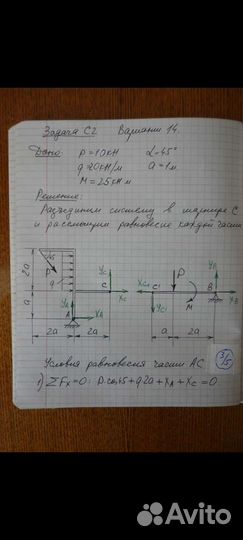 Задача С2 Вариант 14.
Дано: P=10кН α=45°
q=20кН/м a=1м
M=25кН м
Решение:
Разъединим систему в шарнире С
и рассмотрим равновесие каждой части
45 P q 2a a
YA A XA YC C XC
2a 2a
XC1 C1 YC1 P M YB B XB
a 2a
3/5
Условия равновесия части АС
1) ΣFx=0: P·cos45+q2a+XA+XC=0
Avito